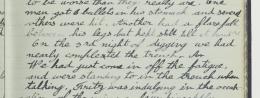 to be worse than they really are. One
man got 2 bullets in his stomach and several
others were hit. Another had a flare fall
between his legs but kept still till it
On the 3rd night of digging we had
nearly completed the trench. An
We had just come in off the fatigue,
and were standing to in the trench when
talking, Fritz was indulging in the usual